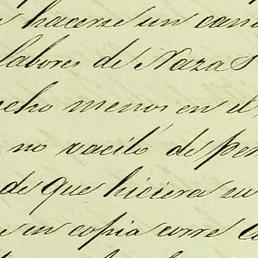 hacerse un con
labores de Naza
cho menos en el
no vaciló de per
de que hiciera su
en copia corre